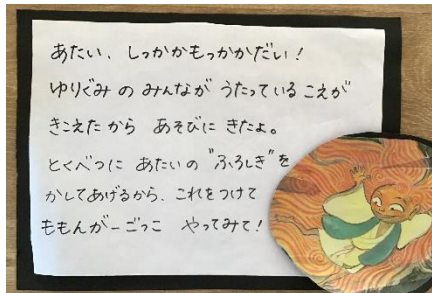 あたい、しっかかもっかかだい！
ゆりぐみ の みんなが うたっている こえが
きこえた から あそびに きたよ。
とくべつに あたいの “ふろしき” を
かしてあげるから、これをつけて
ももんがーごっこ やってみて！